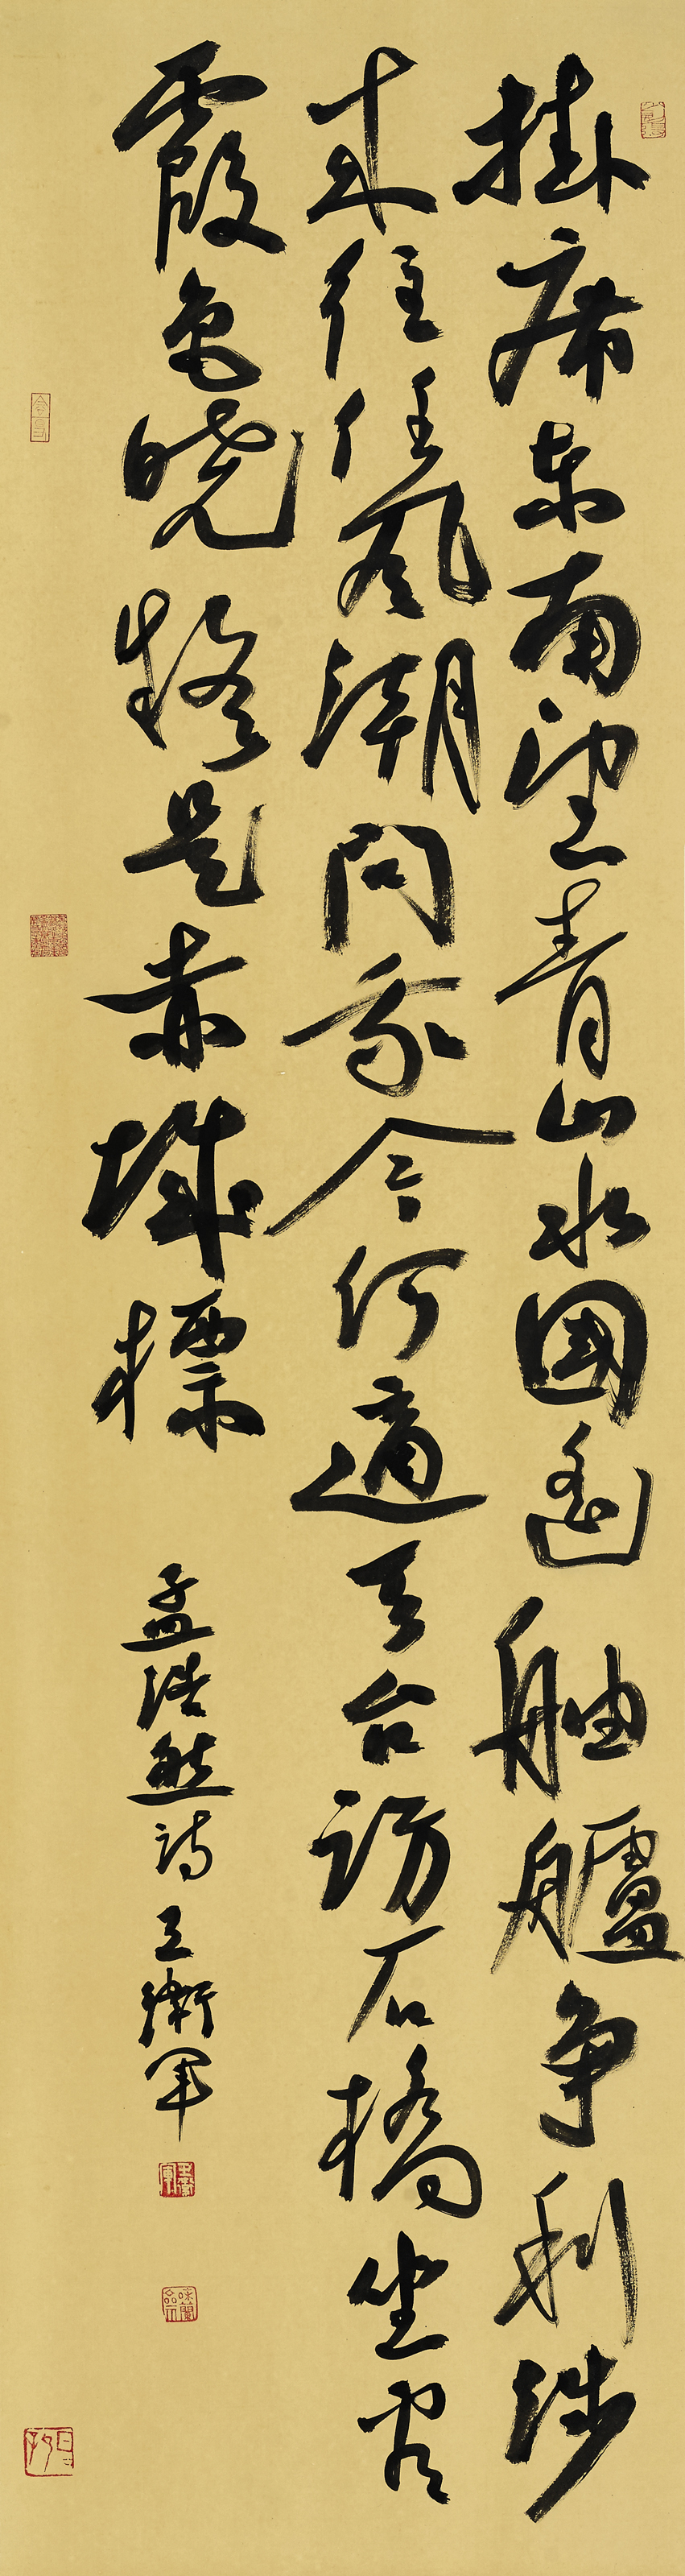 掛席東南望青山水國遥舳艫争利涉
来往任風潮問我今何適天台訪石橋坐看
霞色曉疑是赤城標 孟浩然詩 王衛軍